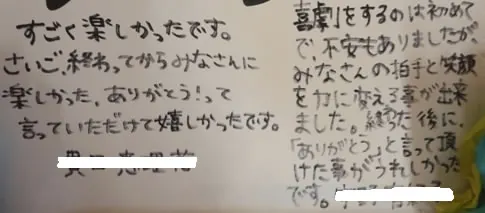 すごく楽しかったです。
さいご、終わってからみなさんに
楽しかった、ありがとう！って
言っていただけて嬉しかったです。
喜劇をするのは初めて
で、不安もありましたが
みなさんの拍手と笑顔
を力に変える事が出来
ました。終った後に、
「ありがとう」と言って頂
けた事がうれしかった
です。